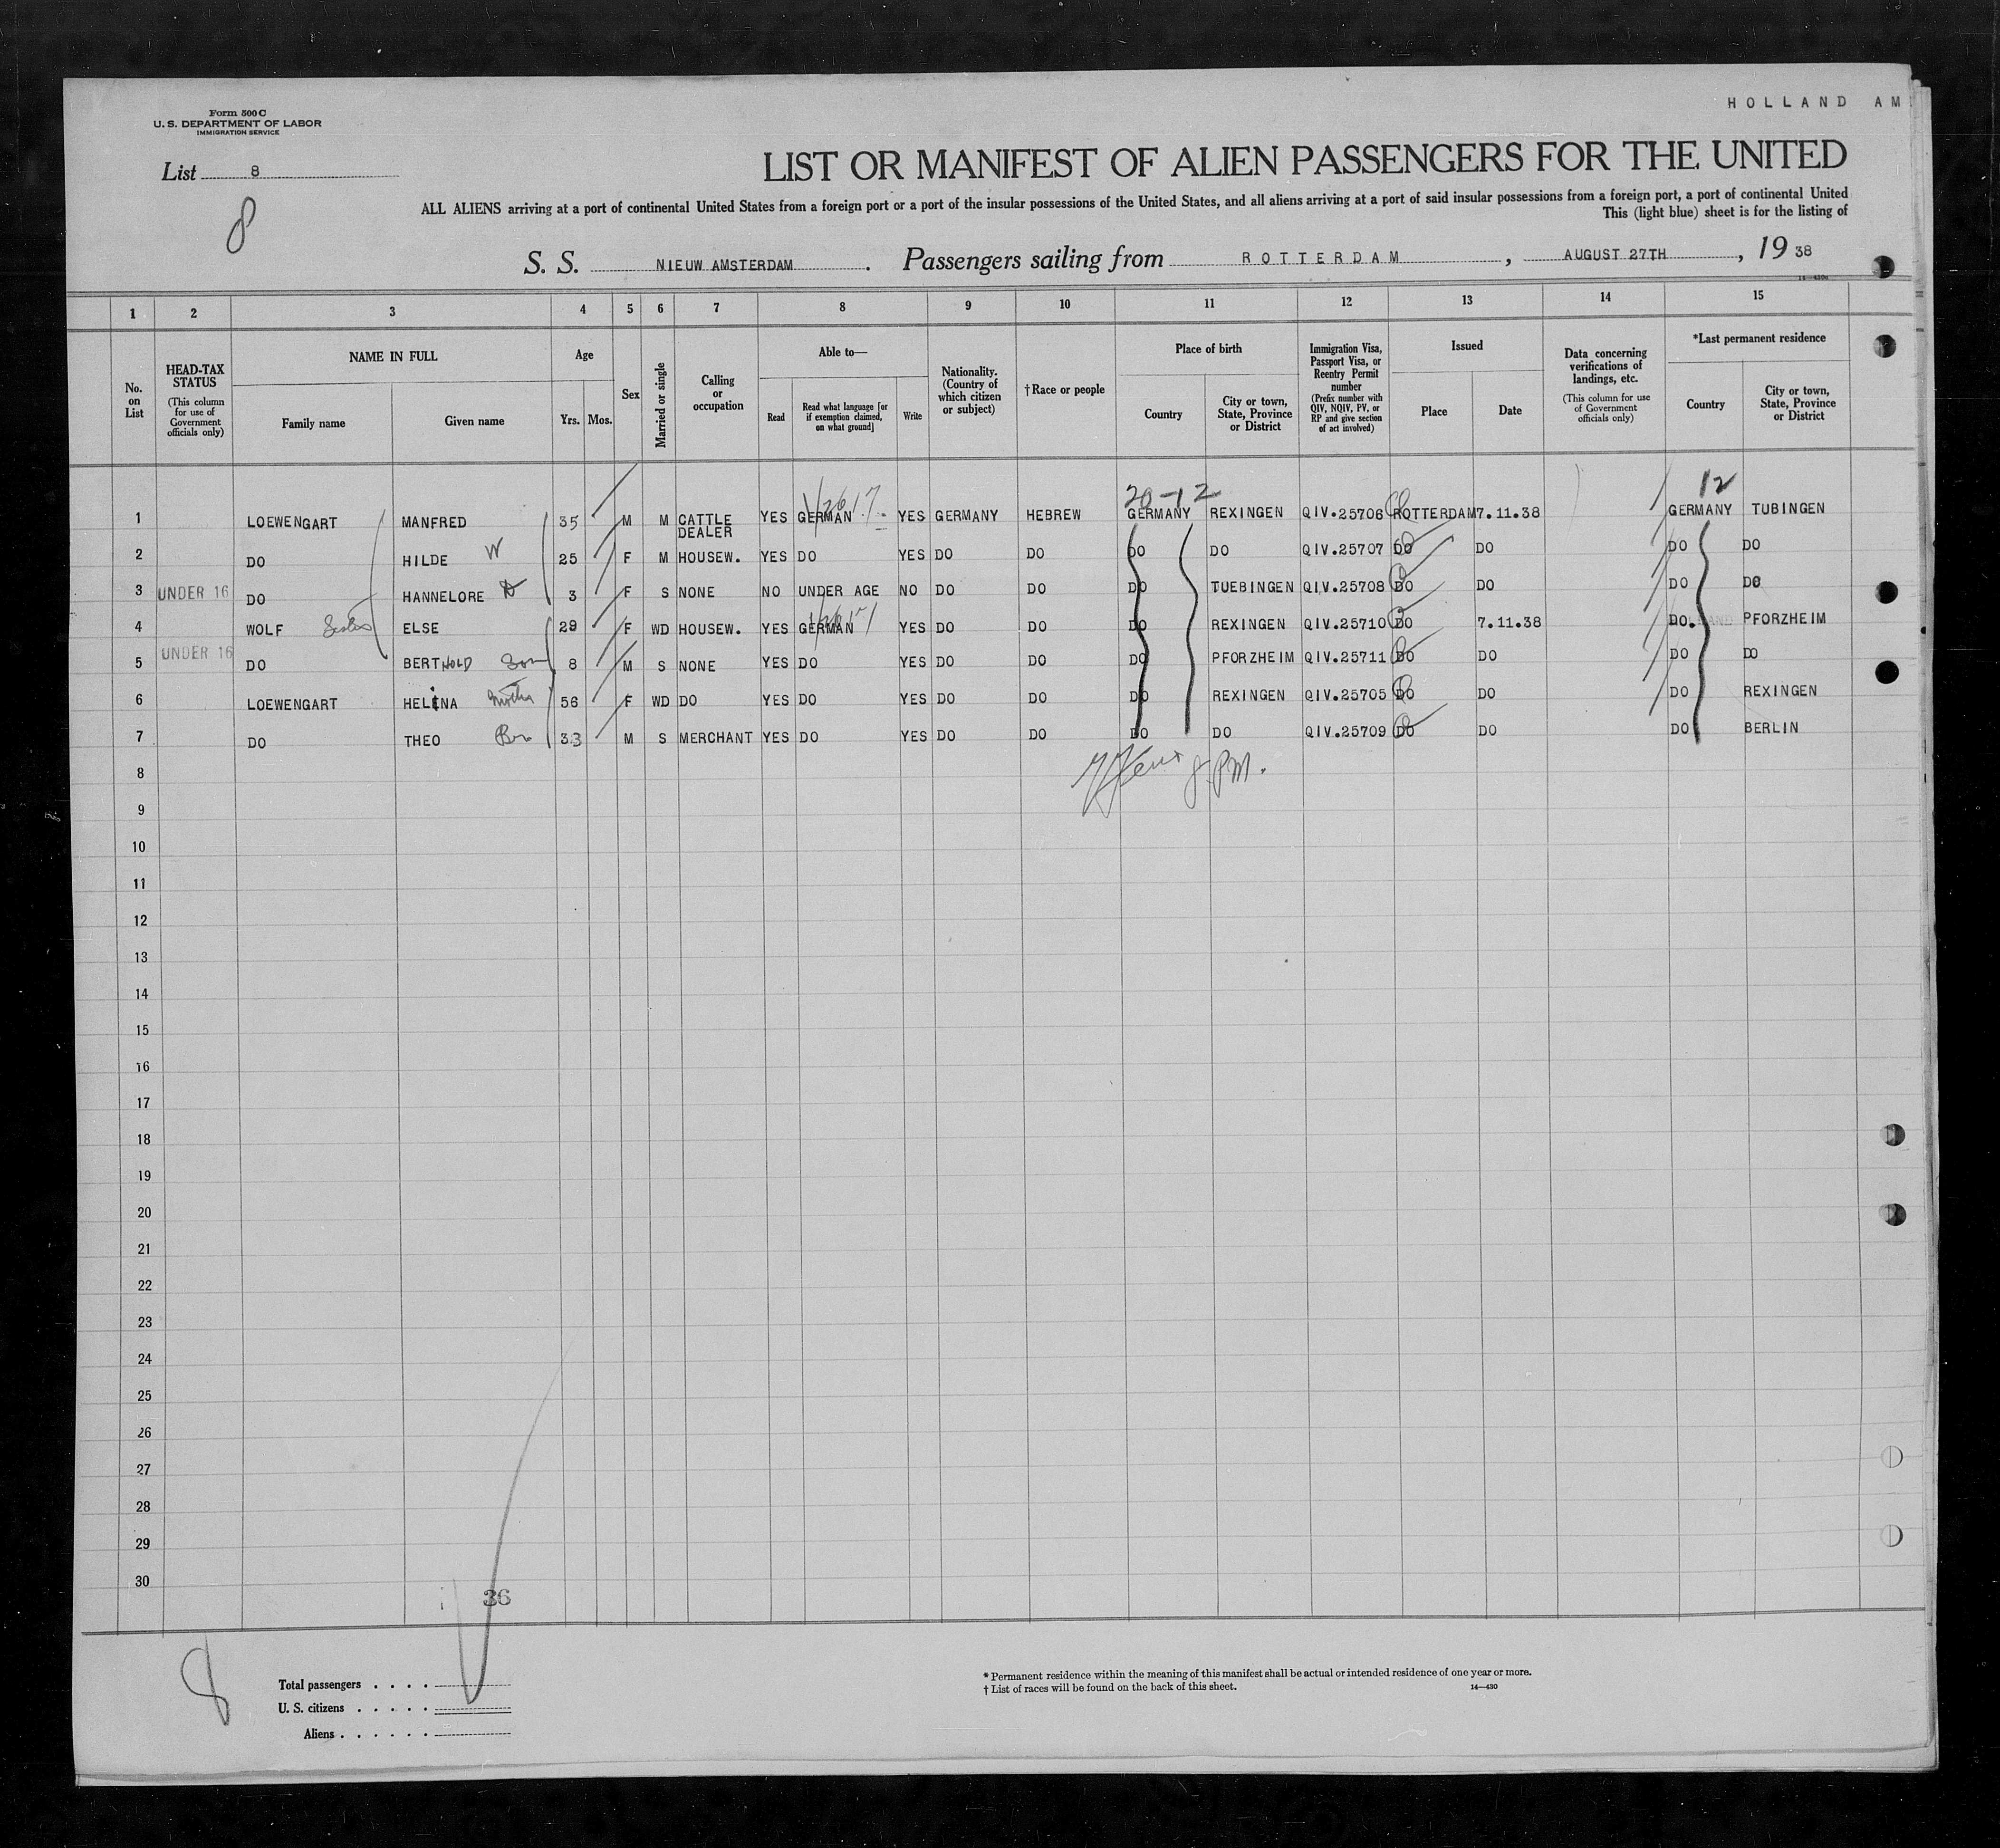 HOLLAND AM
Form 500 C
U. S. DEPARTMENT OF LABOR
IMMIGRATION SERVICE
List 8
8
LIST OR MANIFEST OF ALIEN PASSENGERS FOR THE UNITED
ALL ALIENS arriving at a port of continental United States from a foreign port or a port of the insular possessions of the United States, and all aliens arriving at a port of said insular possessions from a foreign port, a port of continental United
This (light blue) sheet is for the listing of
S. S. NIEUW AMSTERDAM . Passengers sailing from ROTTERDAM , AUGUST 27TH , 19 38
1 2 3 4 5 6 7 8 9 10 11 12 13 14 15
No. on List
HEAD-TAX STATUS (This column for use of Government officials only)
NAME IN FULL
Family name Given name
Age
Yrs. Mos.
Sex
Married or single
Calling or occupation
Able to—
Read
Read what language [or if exemption claimed, on what ground]
Write
Nationality. (Country of which citizen or subject)
† Race or people
Place of birth
Country
City or town, State, Province or District
Immigration Visa, Passport Visa, or Reentry Permit number (Prefix number with QIV, NQIV, PV, or RP and give section of act involved)
Issued
Place Date
Data concerning verifications of landings, etc. (This column for use of Government officials only)
*Last permanent residence
Country
City or town, State, Province or District
20-12 12
1 LOEWENGART MANFRED 35 M M CATTLE DEALER YES GERMAN YES GERMANY HEBREW GERMANY REXINGEN QIV.25706 ROTTERDAM 7.11.38 GERMANY TUBINGEN
2 DO HILDE W 25 F M HOUSEW. YES DO YES DO DO DO DO QIV.25707 DO DO DO DO
3 UNDER 16 DO HANNELORE D 3 F S NONE NO UNDER AGE NO DO DO DO TUEBINGEN QIV.25708 DO DO DO DO
4 WOLF Sister ELSE 29 F WD HOUSEW. YES GERMAN YES DO DO DO REXINGEN QIV.25710 DO 7.11.38 DO. PFORZHEIM
5 UNDER 16 DO BERTHOLD Son 8 M S NONE YES DO YES DO DO DO PFORZHEIM QIV.25711 DO DO DO DO
6 LOEWENGART HELINA Mother 56 F WD DO YES DO YES DO DO DO REXINGEN QIV.25705 DO DO DO REXINGEN
7 DO THEO Bro 33 M S MERCHANT YES DO YES DO DO DO DO QIV.25709 DO DO DO BERLIN
8
9
10
11
12
13
14
15
16
17
18
19
20
21
22
23
24
25
26
27
28
29
30
36
8
Total passengers . . . .
U. S. citizens . . . . .
Aliens . . . . . .
* Permanent residence within the meaning of this manifest shall be actual or intended residence of one year or more.
† List of races will be found on the back of this sheet. 14—430